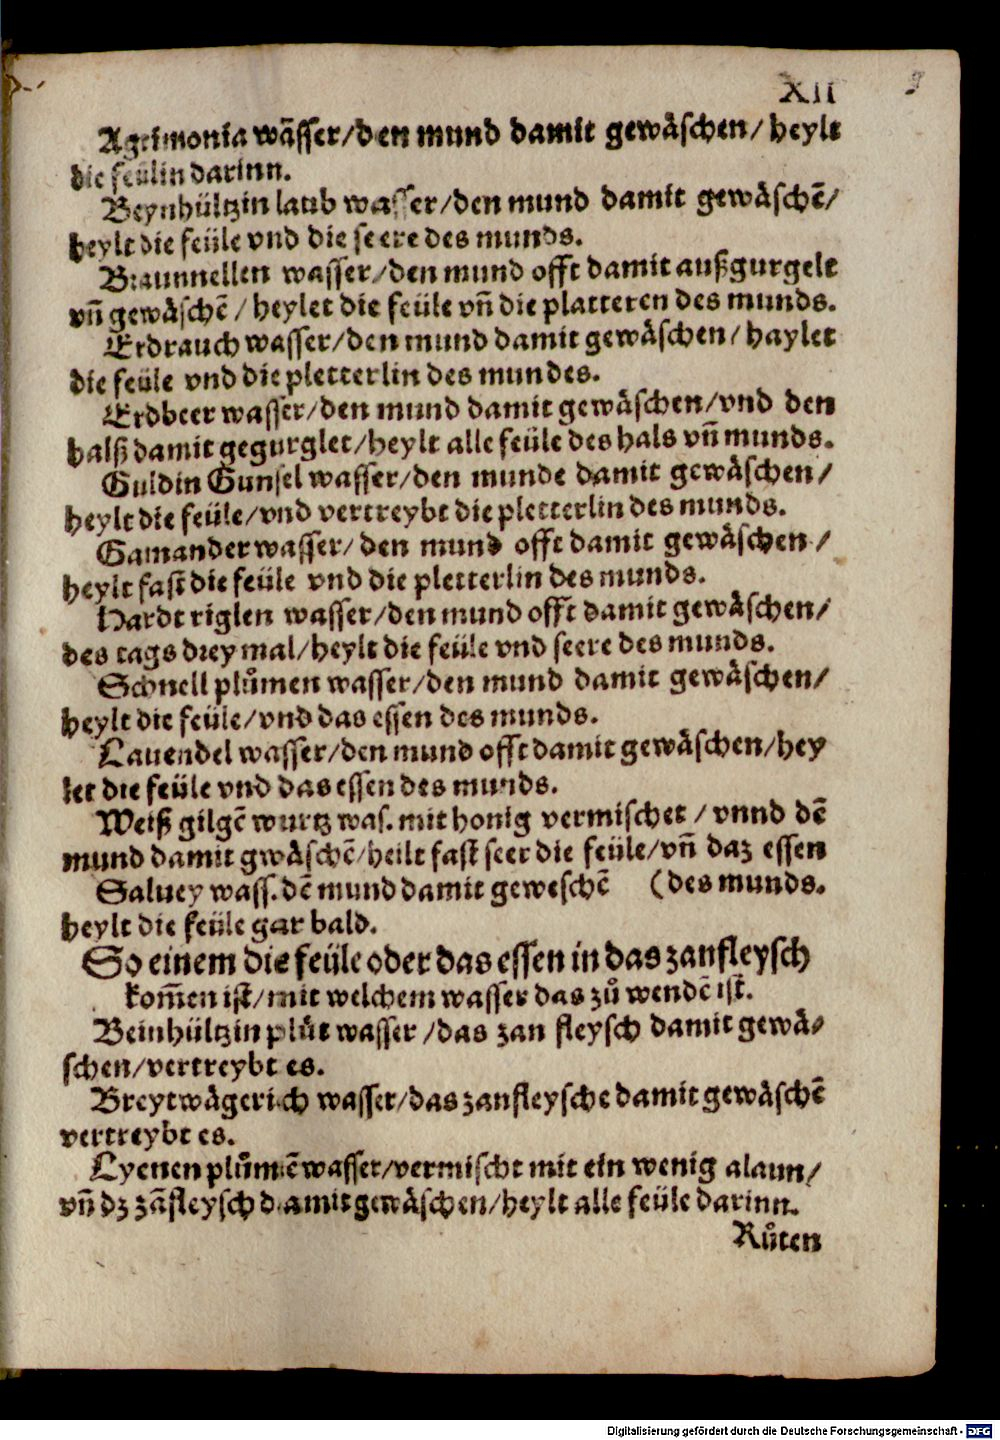 XII 9
Agrimonia wässer/den mund damit gewäschen/ heylt
die feülin darinn.
Beynhültzin laub wasser/den mund damit gewäschē/
heylt die feüle vnd die seere des munds.
Braunnellen wasser/den mund offt damit außgurgelt
vñ gewäschē / heylet die feüle vñ die platteren des munds.
Erdrauch wasser/den mund damit gewäschen/ haylet
die feüle vnd die pletterlin des mundes.
Erdbeer wasser/den mund damit gewäschen/vnd den
halß damit gegurglet/heylt alle feüle des hals vñ munds.
Guldin Gunsel wasser/den munde damit gewäschen/
heylt die feüle/vnd vertreybt die pletterlin des munds.
Gamander wasser/ den mund offt damit gewäschen /
heylt fast die feüle vnd die pletterlin des munds.
Hardt riglen wasser/den mund offt damit gewäschen/
des tags drey mal/heylt die feüle vnd seere des munds.
Schnell plůmen wasser/den mund damit gewäschen/
heylt die feüle/vnd das essen des munds.
Lauendel wasser/den mund offt damit gewäschen/hey
let die feüle vnd das essen des munds.
Weiß gilgē wurtz was. mit honig vermischet / vnnd dē
mund damit gwäschē/heilt fast seer die feüle/vñ daz essen
Saluey wass. dē mund damit geweschē (des munds.
heylt die feüle gar bald.
So einem die feüle oder das essen in das zanfleysch
kom̄en ist/mit welchem wasser das zů wendē ist.
Beinhültzin plůt wasser /das zan fleysch damit gewä-
schen/vertreybt es.
Breytwägerich wasser/das zanfleysche damit gewäschē
vertreybt es.
Lyenen plůmē wasser/vermischt mit ein wenig alaun/
vñ dz zāfleysch damit gewäschen/heylt alle feüle darinn.
Růten
Digitalisierung gefördert durch die Deutsche Forschungsgemeinschaft - DFG